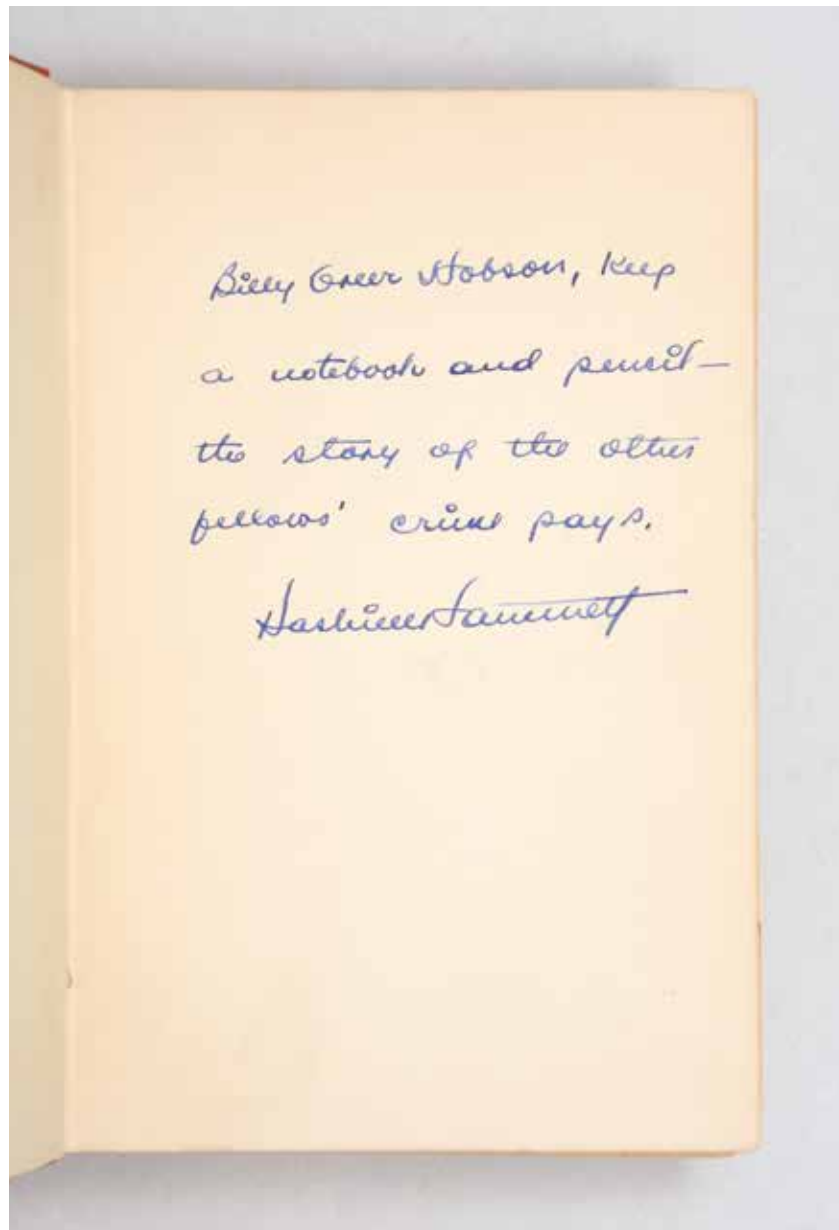 Billy Greer Hobson, Keep
a notebook and pencil—
the story of the other
fellows' crime pays.
Dashiell Hammett